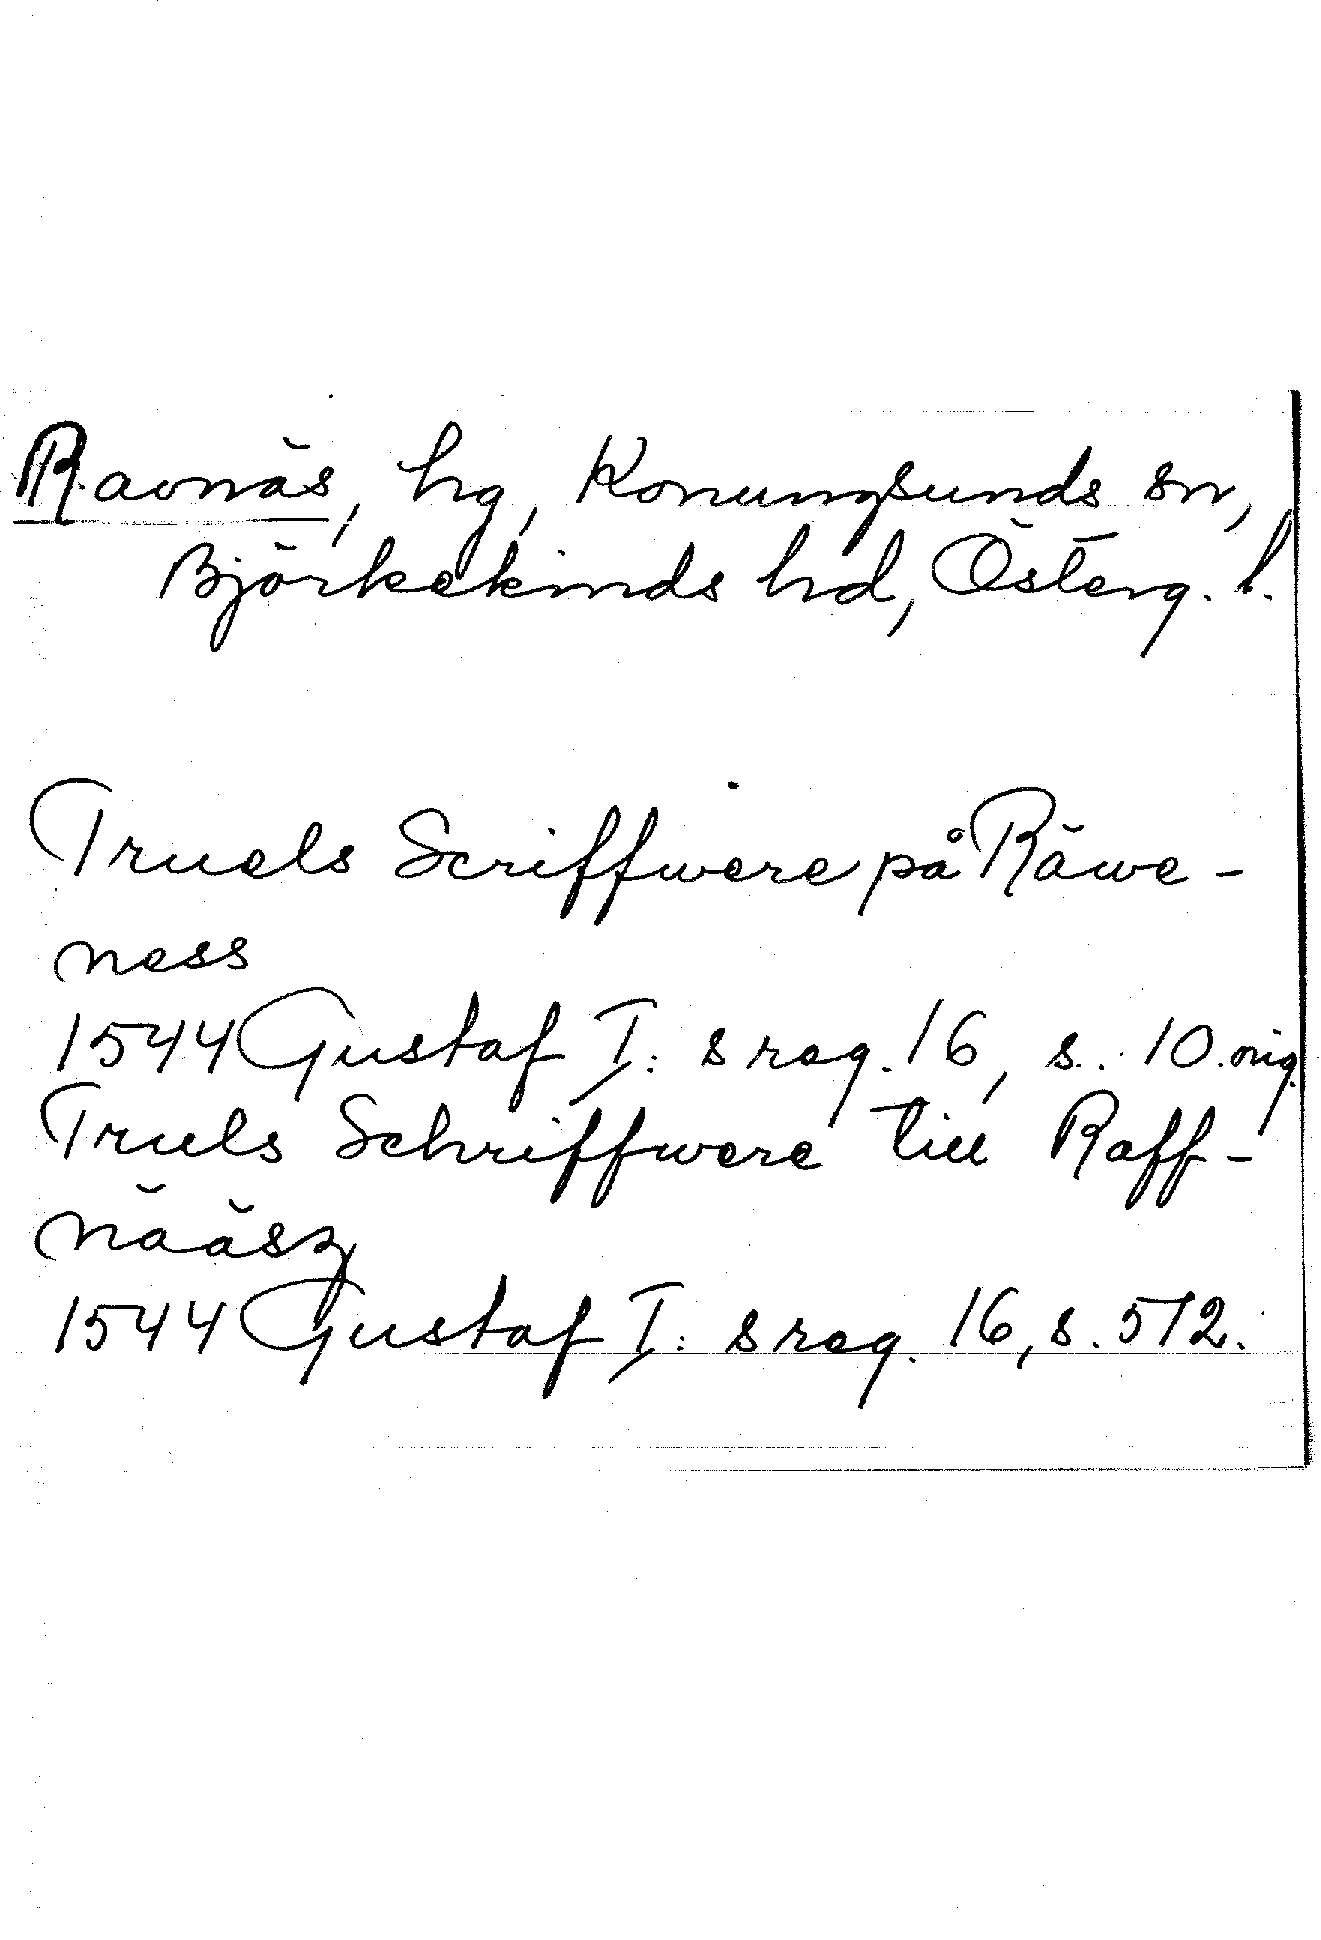 Ravnäs, hg, Konungsunds sn,
Björkekinds hd, Österg. l.
Truels Scriffwere på Räwe-
ness
1544 Gustaf I: s reg. 16, s. 10. orig.
Truls Schriffwere till Raff-
nääsz
1544 Gustaf I: s reg. 16, s. 512.